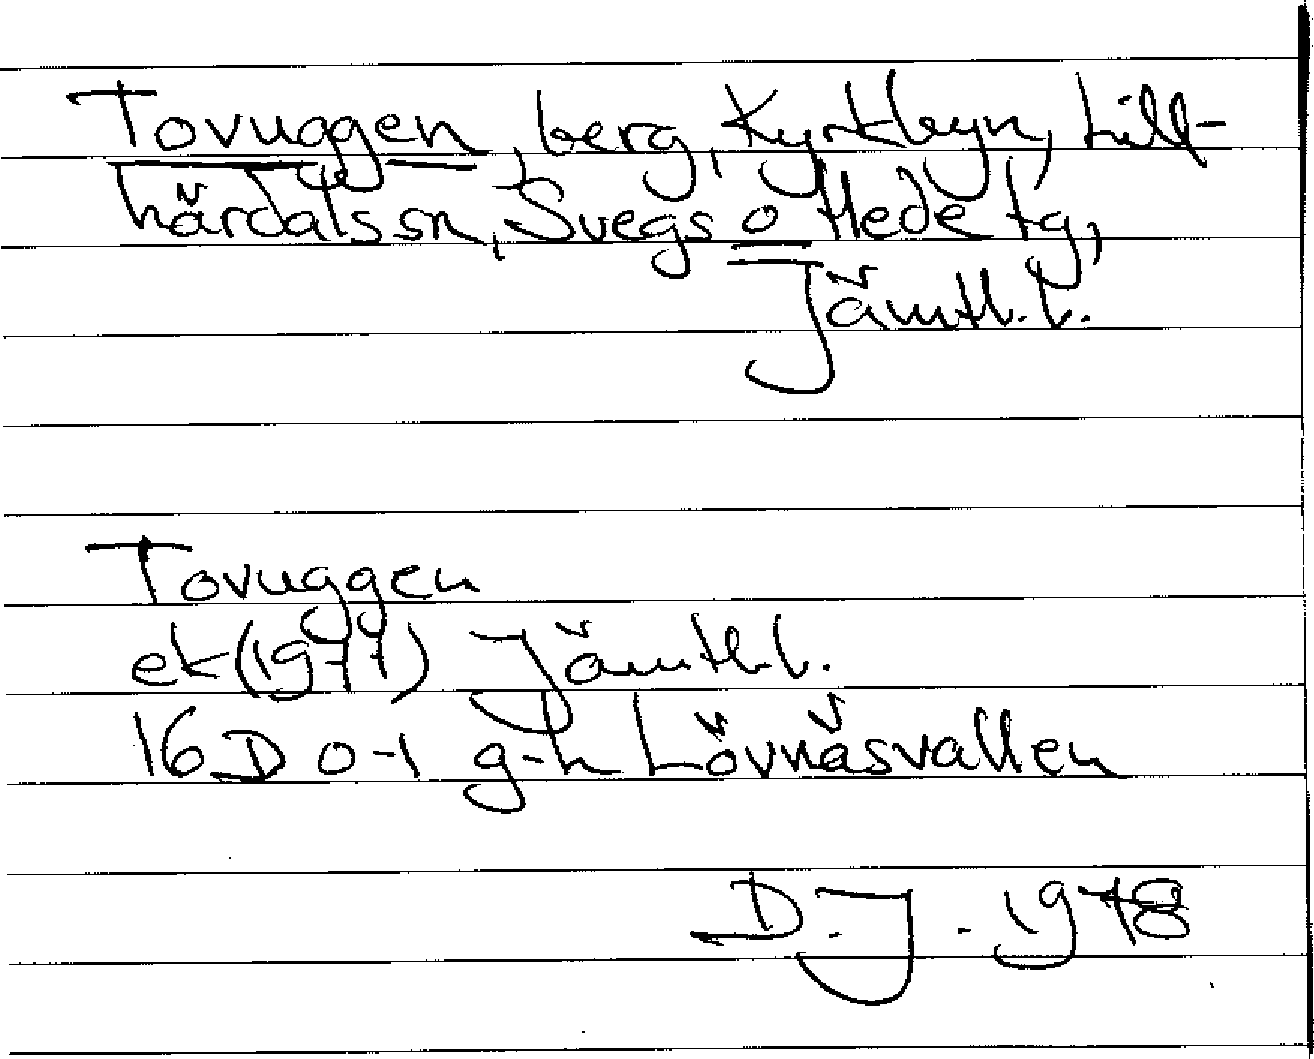 Tovuggen, berg, Kyrkbyn, Lill-
härdals sn, Svegs o Hede tg,
Jämtl. l.
Tovuggen
ek (1977) Jämtl. l.
16 D 0-1 g-h Lövnäsvallen
D. J. 1978